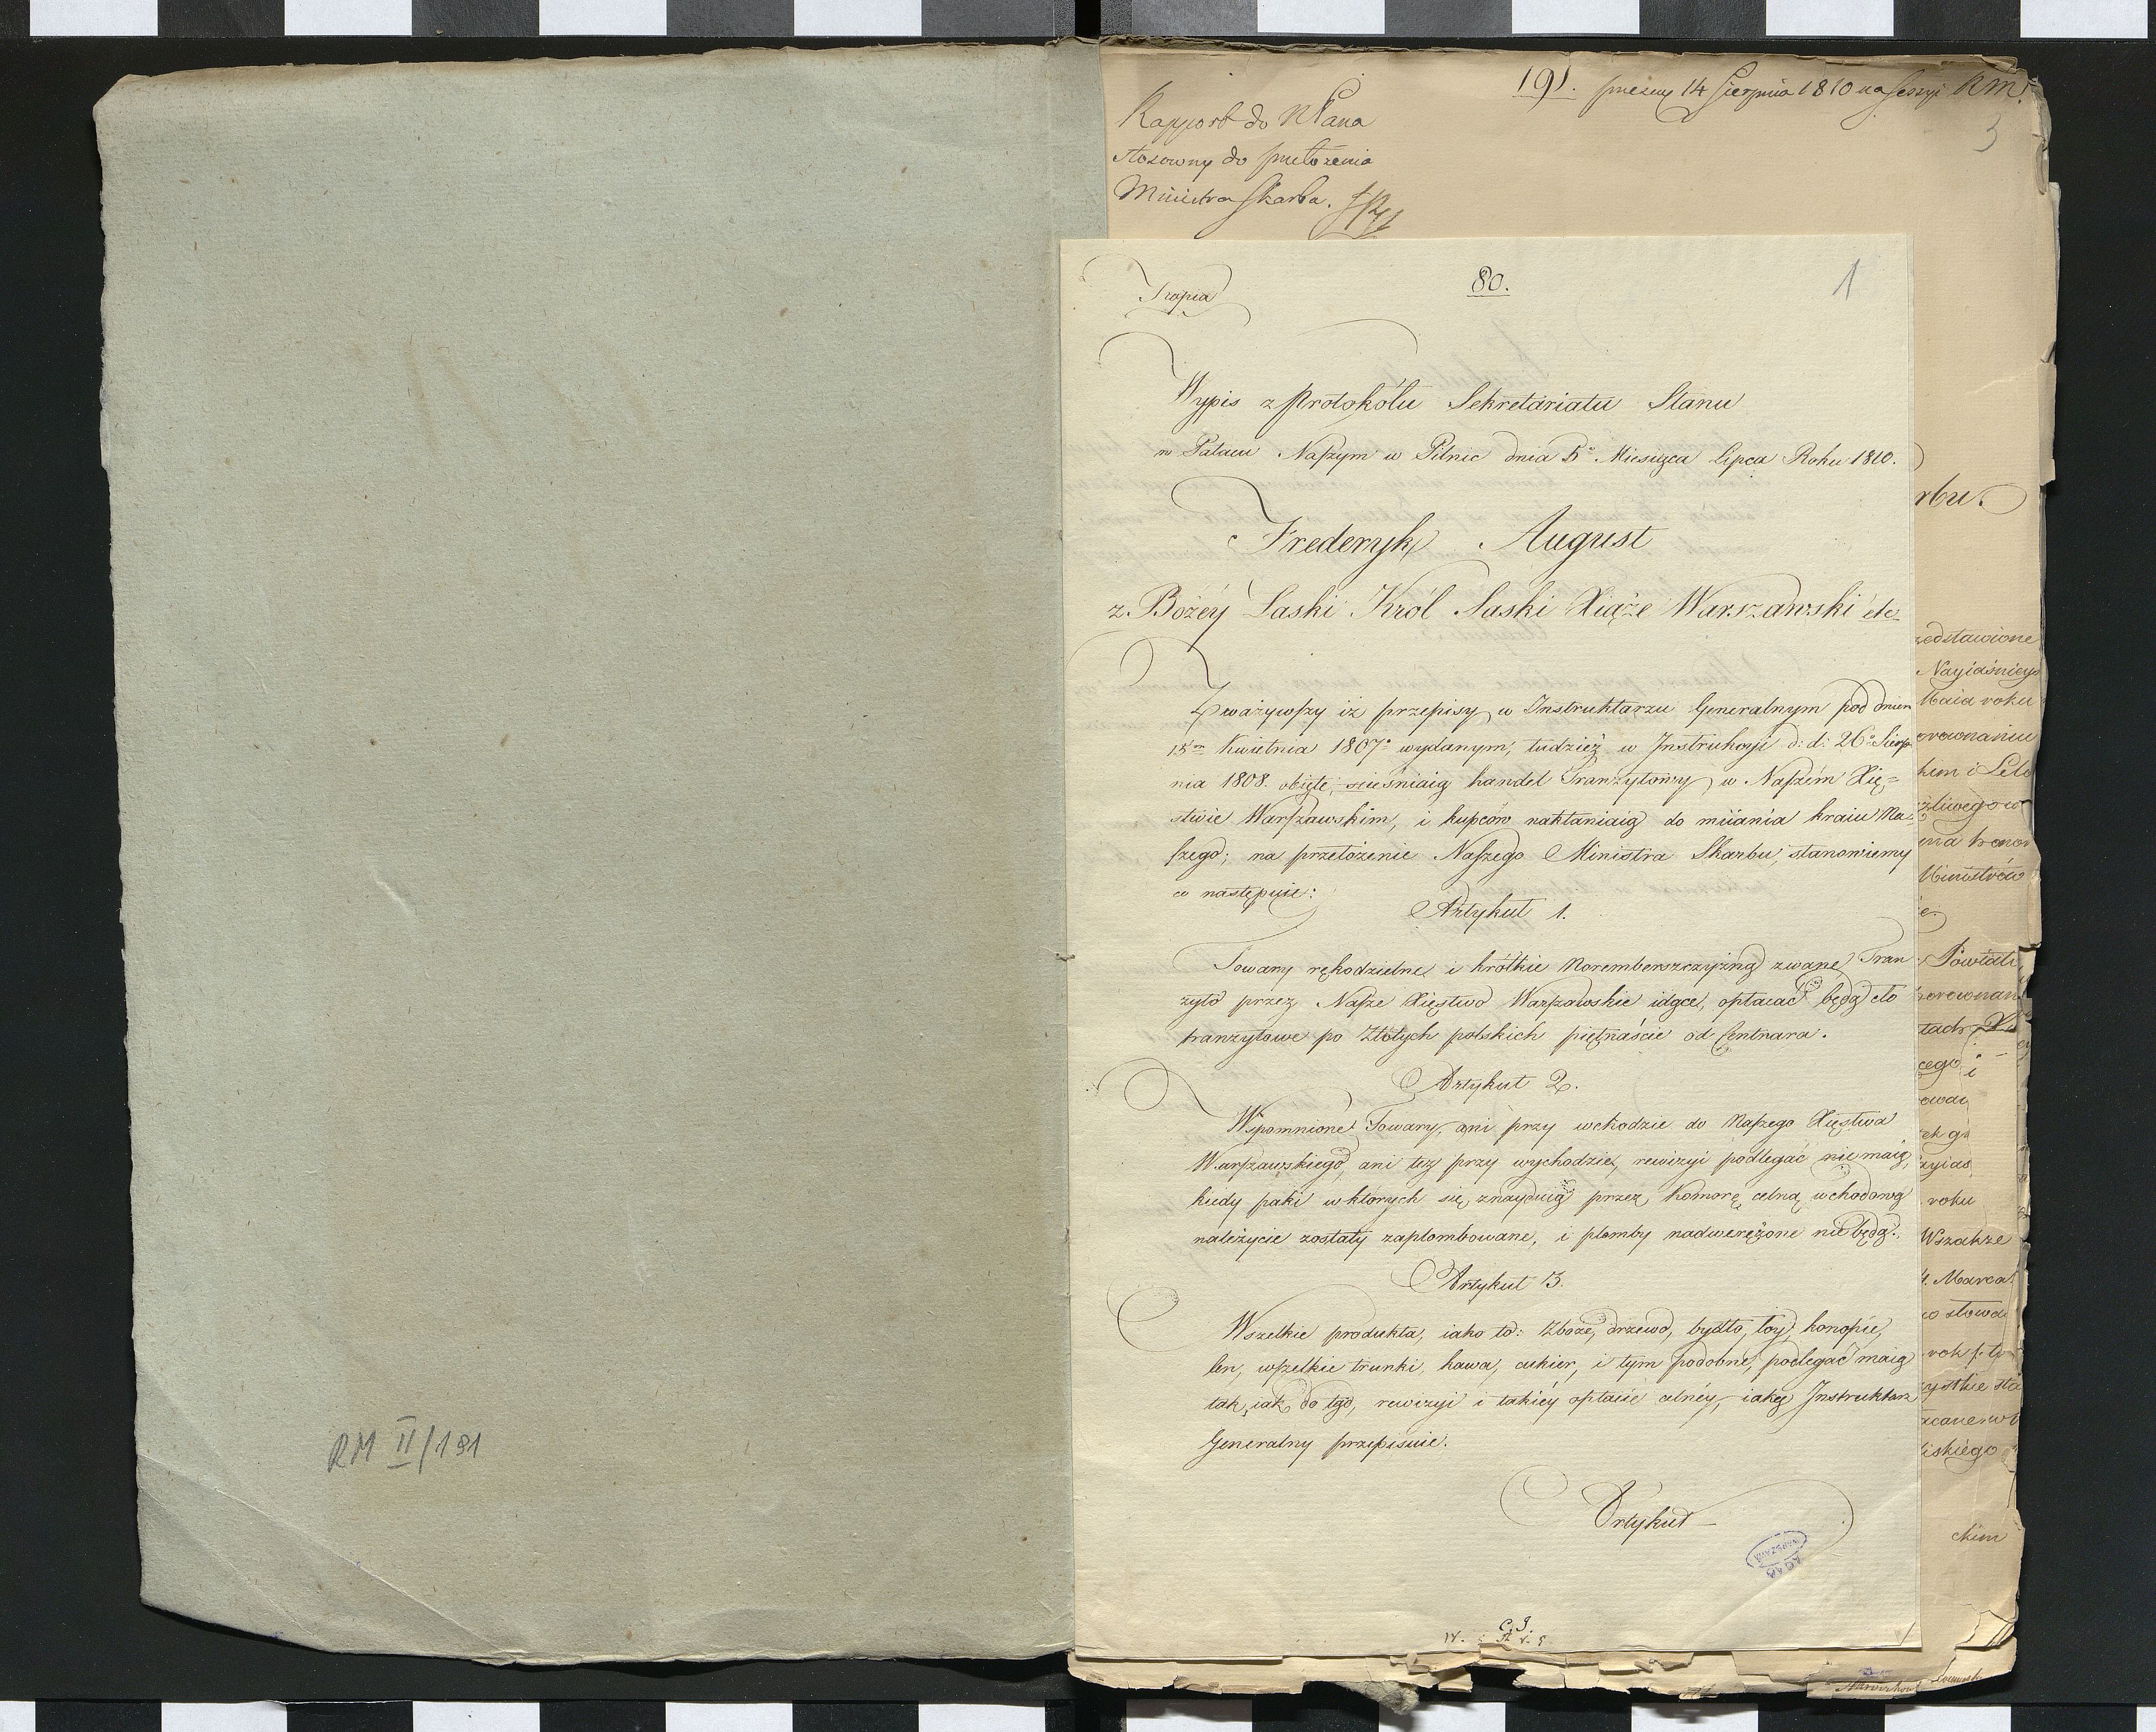 191. 14 Sierpnia 1810 na Sessyi RM.
3
Rapport do NPana
stosowny do przełożenia
Ministra Skarbu.
80.
1
Kopia
Wypis z Protokółu Sekretariatu Stanu
w Pałacu Naszym w Pilnic dnia 5º Miesiąca lipca Roku 1810.
Frederyk August
z Bożéy Łaski Król Saski Xiąże Warszawski etc
Zważywszy iż przepisy w Instruktarzu Generalnym pod dniem
15m Kwietnia 1807º wydanym, tudzież w Instrukcyi d: d: 26º Sierp
nia 1808. obięte, ścieśniaią handel Tranzytowy w Naszém Xię=
stwie Warszawskim, i kupców nakłaniaią do miiania kraiu Na=
szego; na przełożenie Naszego Ministra Skarbu, stanowiemy
co następuie:
Artykuł 1.
Towary rękodzielne i krótkie Noremberszczyzną zwane Tran
zyto przez Nasze Xięstwo Warszawskie idące, opłacać będą cło
tranzytowe po Złotych polskich piętnaście od Centnara.
Artykuł 2.
Wspomnione Towary, ani przy wchodzie do Naszego Xięstwa
Warszawskiego, ani też przy wychodzie, rewizyi podlegać nie maią,
kiedy paki w których się znayduią przez Komorę celną wchodową
należycie zostały zaplombowane, i plomby nadwerężone nie będą.
Artykuł 3.
Wszelkie produkta, iako to: Zboże, drzewo, bydło, łóy, konopie,
len, wszelkie trunki, kawa, cukier, i tym podobne, podlegać maią
tak iak do tąd, rewizyi i takiéy opłacie celnéy, iaką Instruktarz
Generalny przepisuie.
Artykuł
AGAD
WARSZAWA
RM II/191
rbu.
zedstawione
Nayiaśnieys
Maia roku
Ministrów
Powiatu
cego i
roku
Wszakże
4. Marca
iskiego
ckim